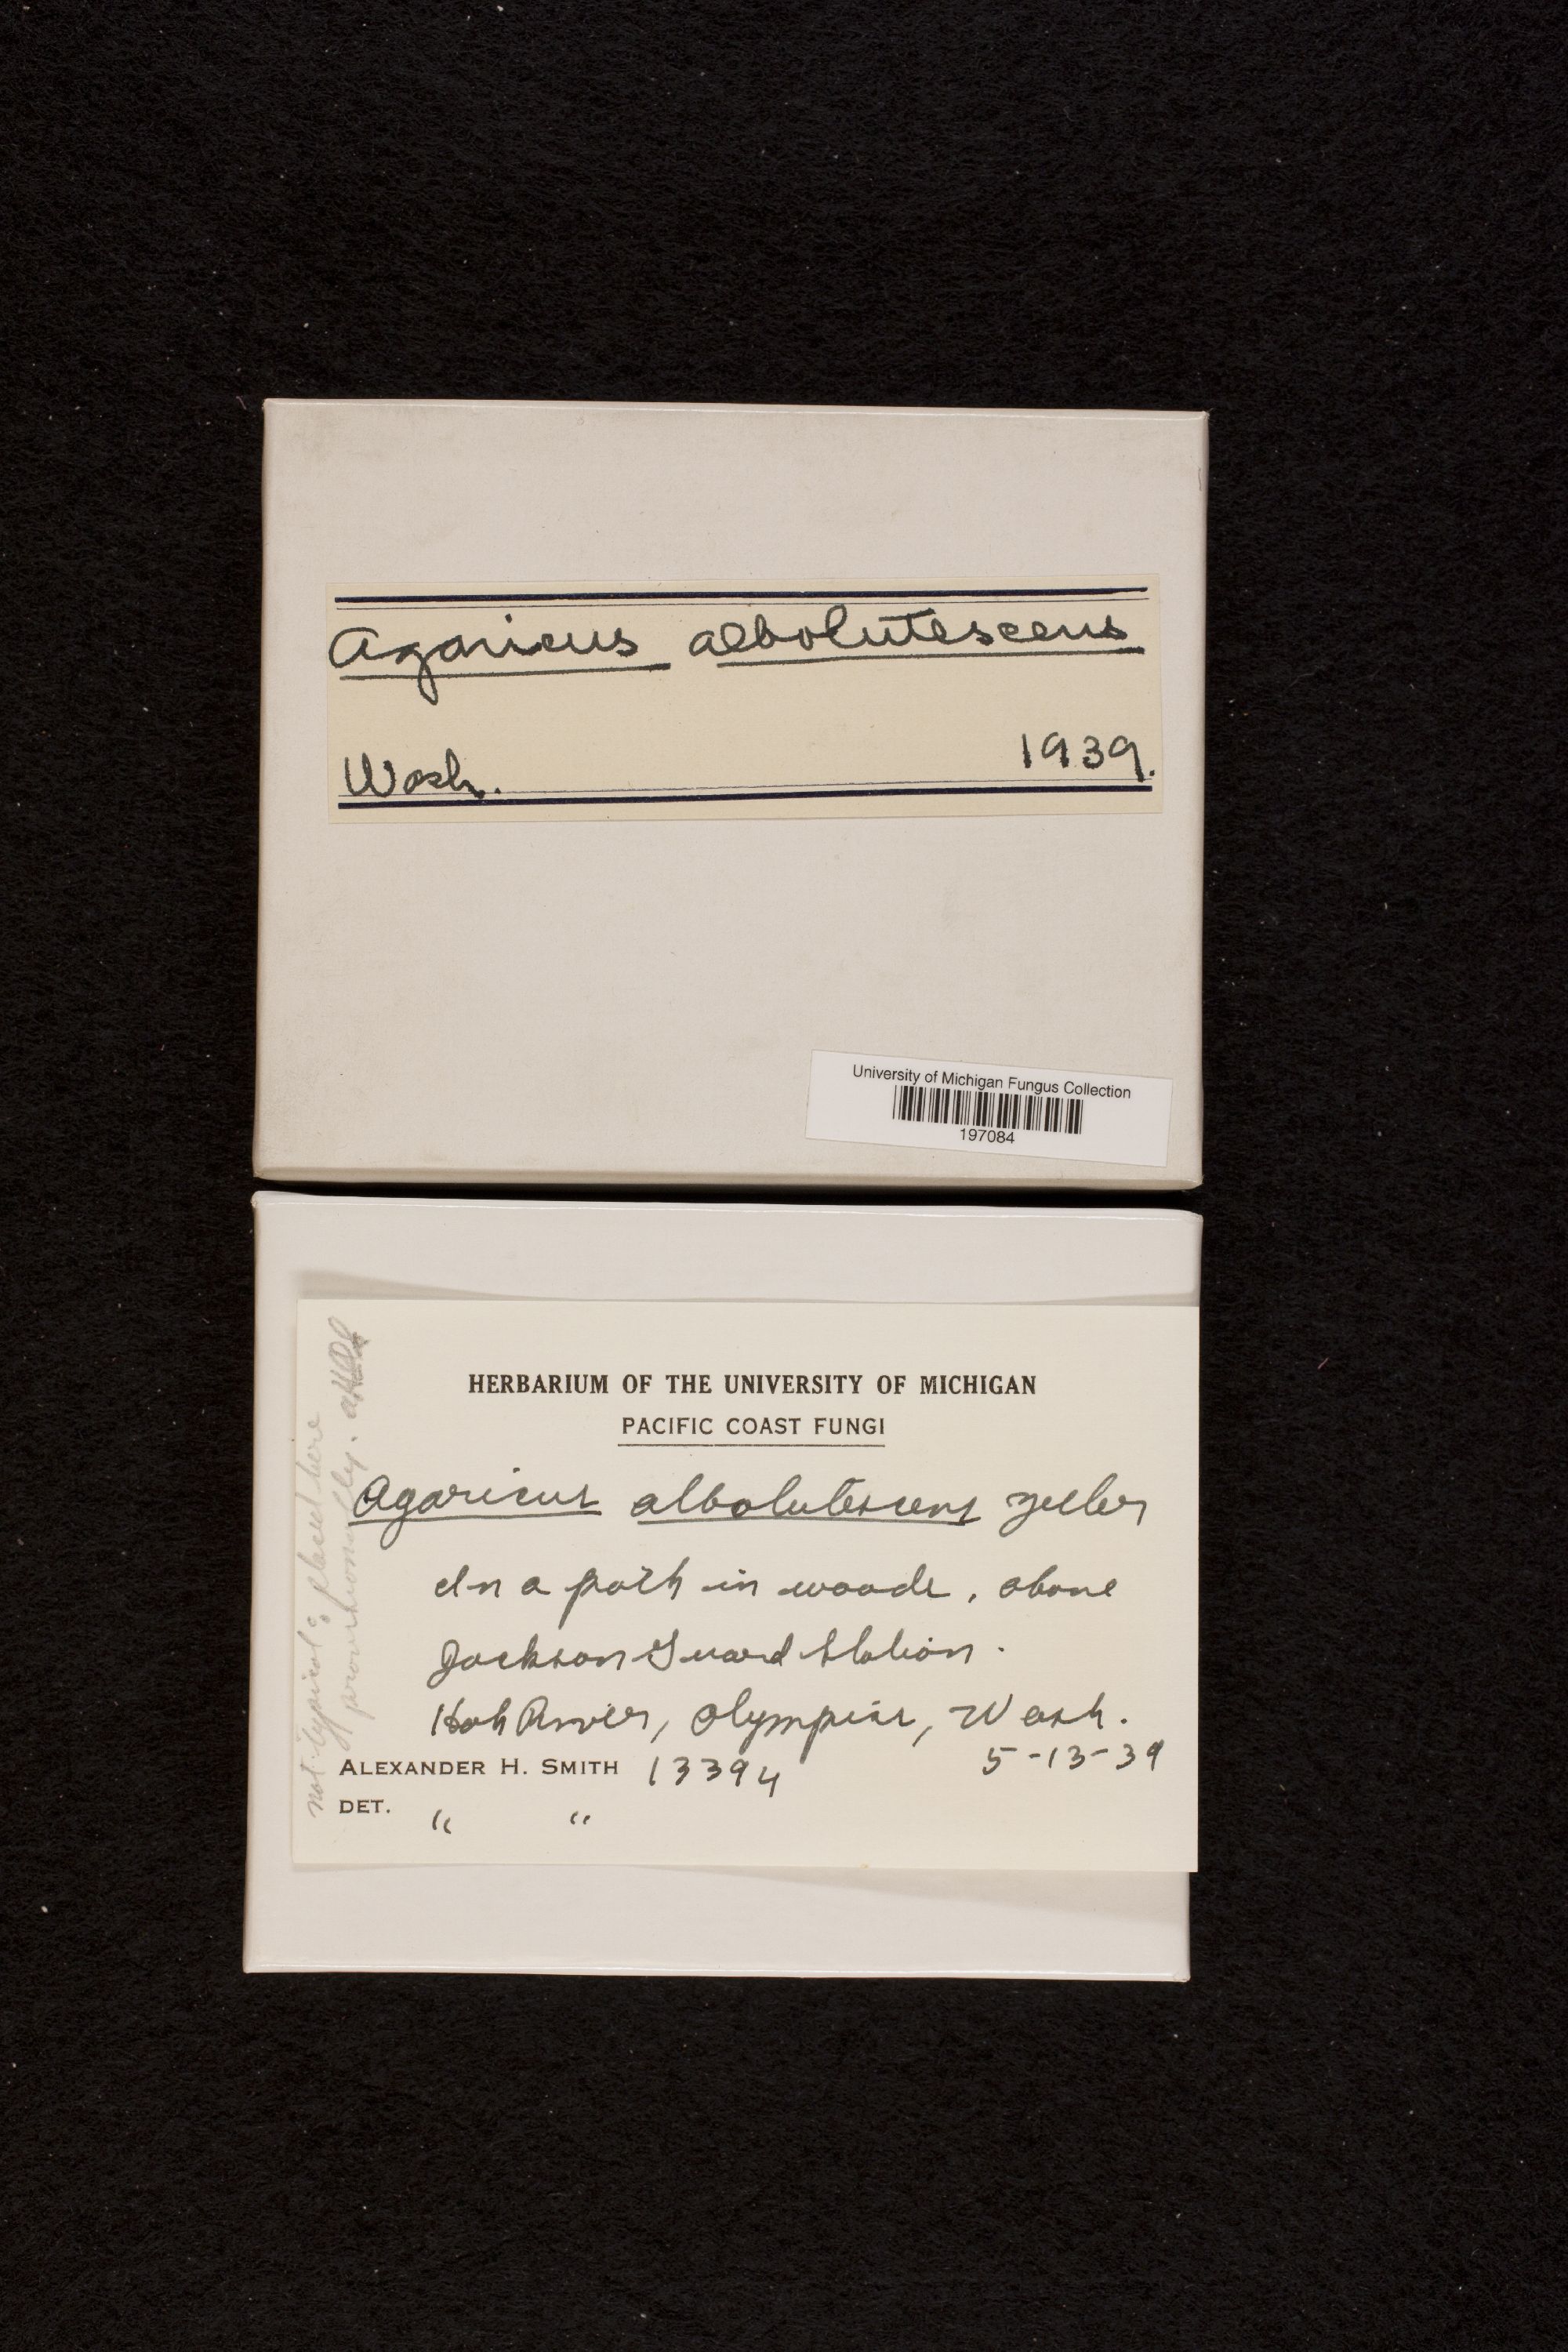 Agaricus albolutescens
Wash. 1939.
University of Michigan Fungus Collection
197084
HERBARIUM OF THE UNIVERSITY OF MICHIGAN
PACIFIC COAST FUNGI
Agaricus albolutescens Zeller
In a path in woods, above
Jackson Guard Station.
Hoh River, Olympics, Wash.
ALEXANDER H. SMITH 13394 5-13-39
DET. " "
not typical: placed here
provisionally.